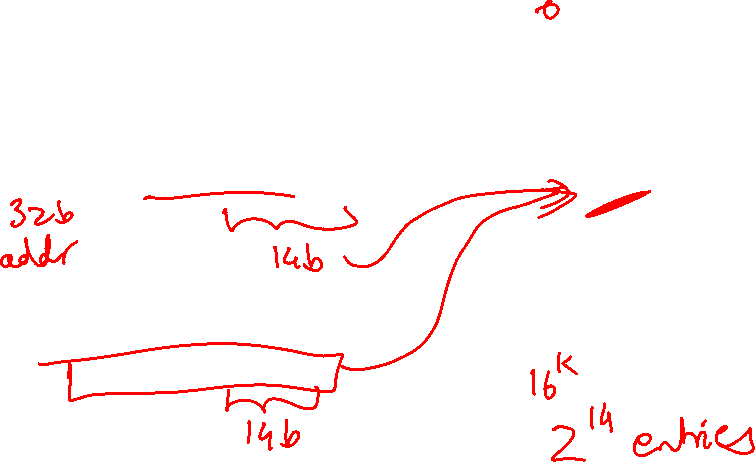 32b
addr
14b
14b
16K
2^14 entries